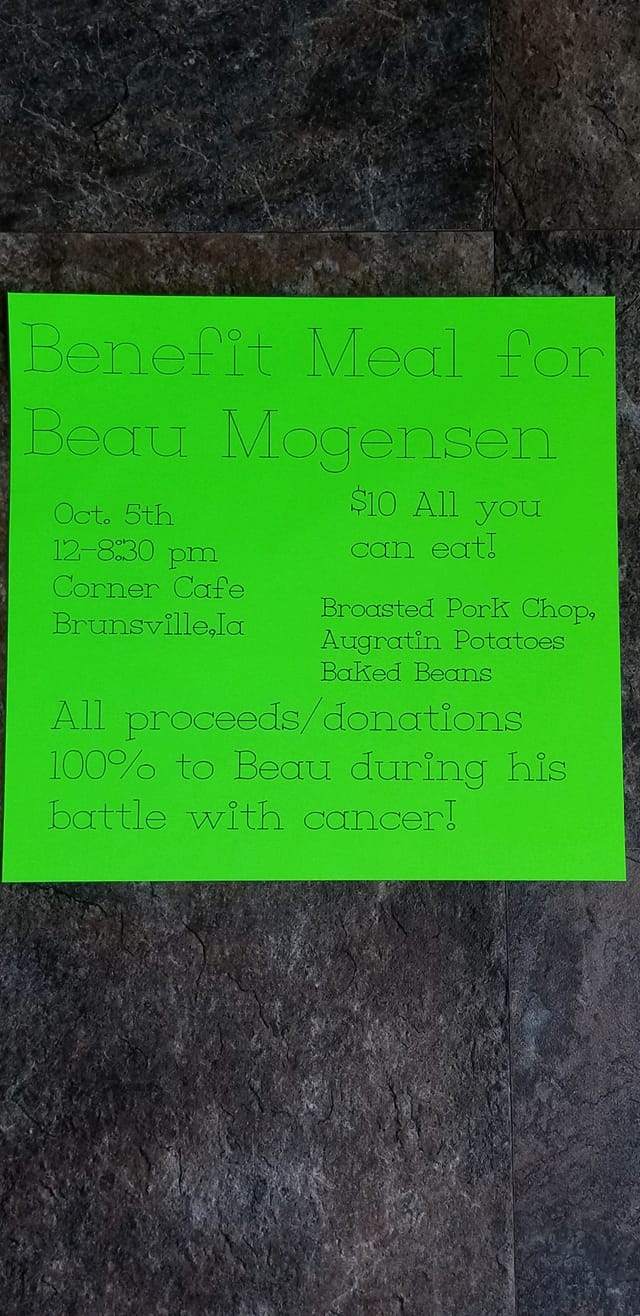 Benefit Meal for
Beau Mogensen
Oct. 5th
12-8:30 pm
Corner Cafe
Brunsville,Ia
$10 All you
can eat!
Broasted Pork Chop,
Augratin Potatoes
Baked Beans
All proceeds/donations
100% to Beau during his
battle with cancer!